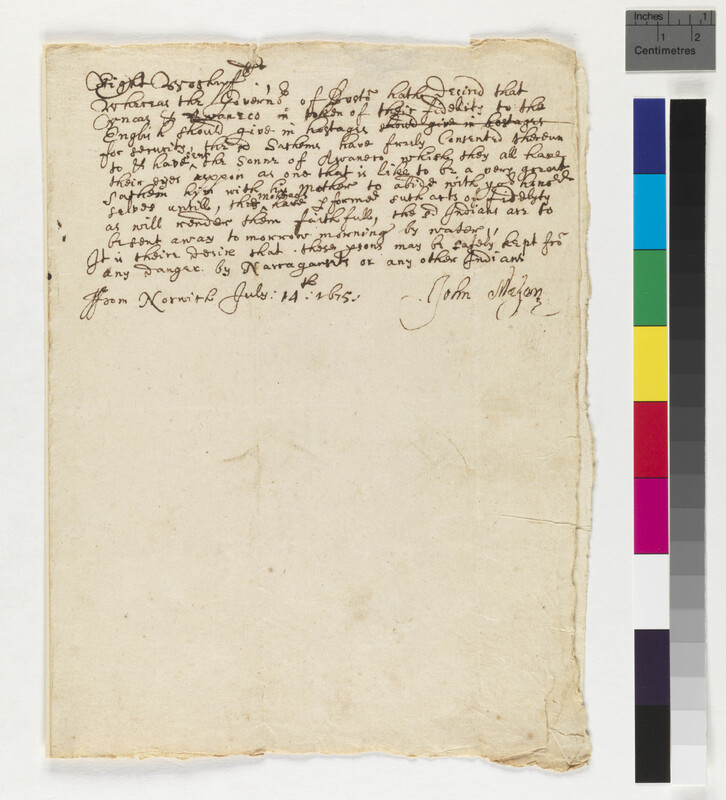 Right Worshpff
Whereas the Governr of Bostō hath desired that
Vncas & Awaneco in token of their fidelity to the
English should give in hostages should give in hostages
for security, the sd Sachems have freely Consented thereun
to & have sent the Sonne of Awaneco which they all have
their eyes uppon as one that is like to be a very great
Sachem him with his Mother to abide with yor
selves untill, the Moheags have pformed such acts of fidelyty
as will render them faithfull, the sd Indians are to
be sent away to morrow morning by water,
It is their desire that these psons may be safely kept frō
any danger by Narragants or any other Indians
ffrom Norwich July: 14th: 1675:
John Mason
Inches 1
1 2
Centimetres